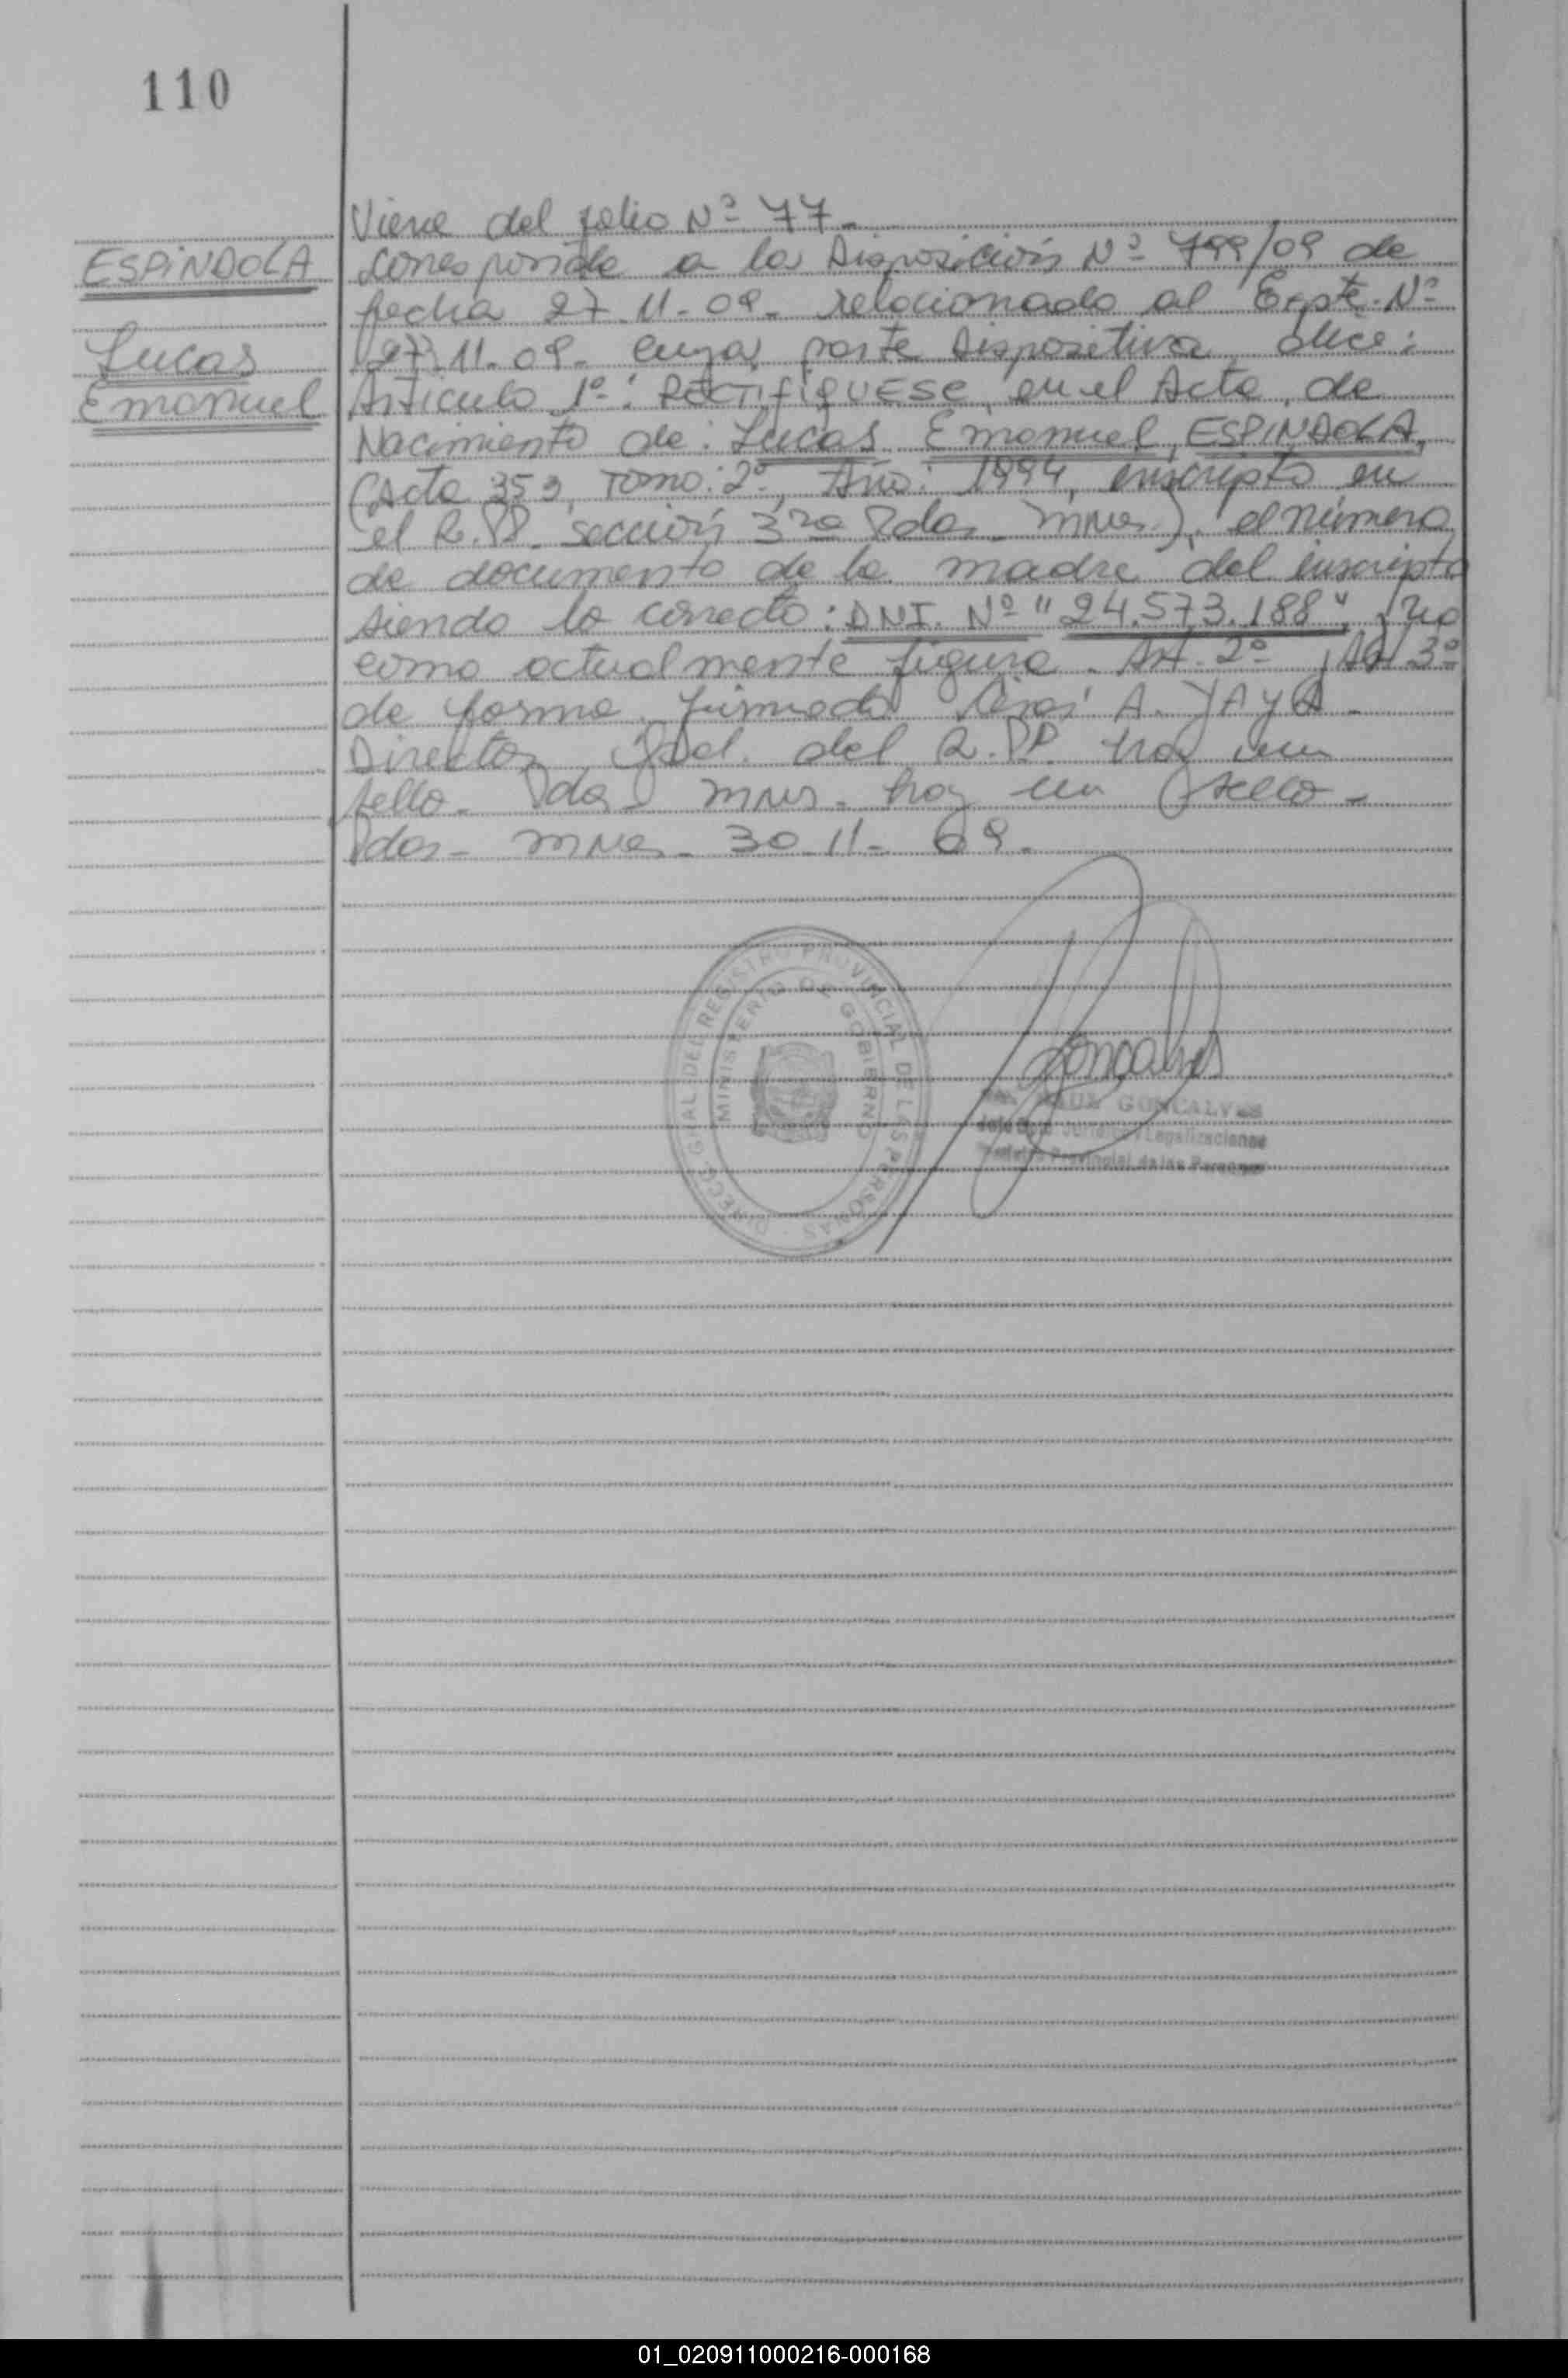 110
Viene del folio Nº 77-
ESPINDOLA
Lucas
Emanuel
Corresponde a la Disposición Nº 799/09 de
fecha 27-11-09- relacionado al Expte. Nº
27-11-09- cuya parte Dispositiva dice:
Artículo 1º: RECTIFIQUESE, en el Acta de
Nacimiento de: Lucas Emanuel ESPINDOLA,
(Acta 353, Tomo: 2º, Año: 1994, inscripto en
el R.PP. sección 3ra Pdas. Mnes.), el número
de documento de la madre del inscripto
siendo lo correcto: DNI. Nº "24.573.188", y no
como actualmente figura. Art. 2º, Art 3º
de forma. firmado A. YAYA-
Director Gral. del R.PP. hay un
sello- Pdas Mnes. hay un sello-
Pdas- Mnes- 30-11-09.
DIRECC. GRAL DEL REGISTRO PROVINCIAL DE LAS PERSONAS
MINISTERIO DE GOBIERNO
Goncalves
RAUL GONCALVES
Legalizaciones
Registro Provincial de las Personas
01_020911000216-000168